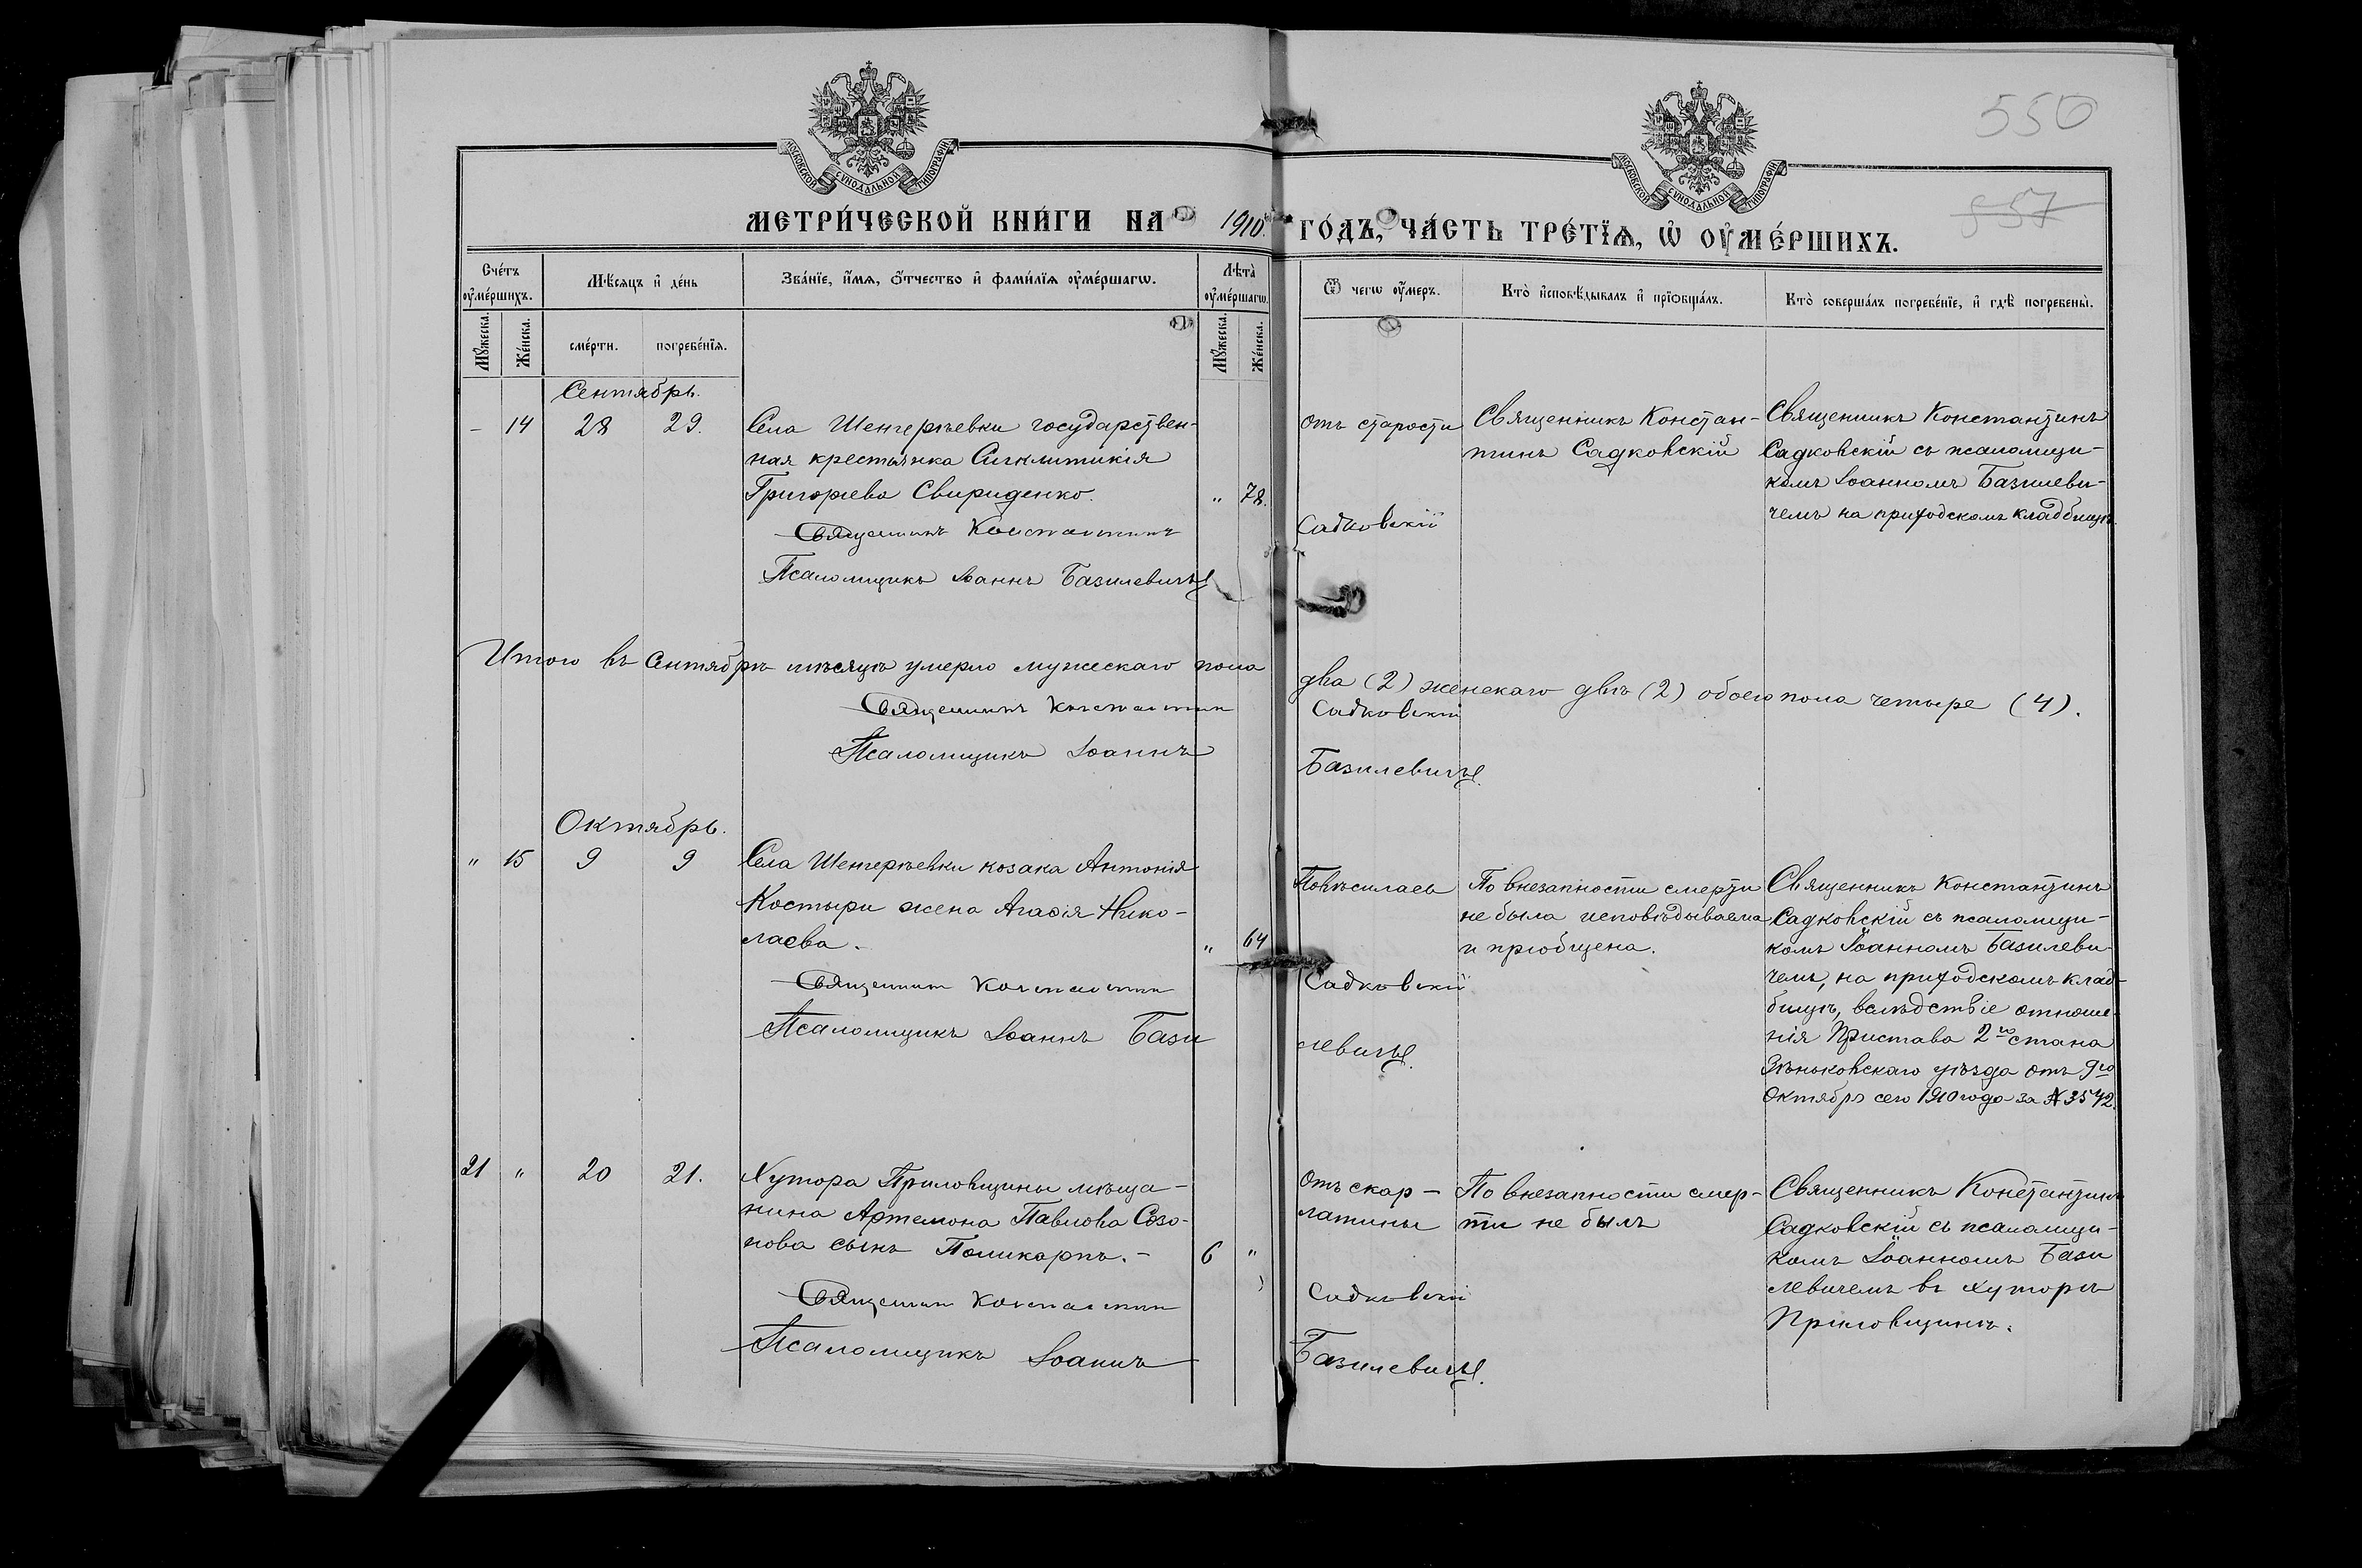 556
557
МОСКОВСКОЙ СѴНОДАЛЬНОЙ ТИПОГРАФІИ
МОСКОВСКОЙ СѴНОДАЛЬНОЙ ТИПОГРАФІИ
МЕТРИ́ЧЕСКОЙ КНИ́ГИ НА 1910 ГО́ДЪ, ЧА́СТЬ ТРЕ́ТІѦ, Ѡ҆ ОУ҆МЕ́РШИХЪ.
Сче́тъ оу҆ме́ршихъ.
Мѣ́сяцъ и҆ де́нь
Зва́нїе, и҆́мѧ, ѻ҆́тчество и҆ фами́лїѧ оу҆ме́ршагѡ.
Лѣ́та̀ оу҆ме́ршагѡ.
Ѿ чегѡ̀ оу҆́меръ.
Кто̀ и҆сповѣ́дывалъ и҆ прїѡбща́лъ.
Кто̀ соверша́лъ погребе́нїе, и҆ гдѣ̀ погребены̀.
Мꙋ́жеска.
Же́нска.
сме́рти.
погребе́нїѧ.
Мꙋ́жеска.
Же́нска.
Сентябрь.
– 14 28 29. Села Шенгерѣевки государствен-
ная крестьянка Сигклитикія
Григорьева Свириденко. " 78.
Священникъ Константинъ
Псаломщикъ Іоаннъ Базилевичъ
отъ старости
Садковскій
Священникъ Констан-
тинъ Садковскій
Священникъ Константинъ
Садковскій съ псаломщи-
комъ Іоанномъ Базилеви-
чемъ на приходскомъ кладбищѣ.
Итого въ Сентябрѣ мѣсяцѣ умерло мужескаго пола два (2) женскаго двѣ (2) обоего пола четыре (4).
Священникъ Константин Садковскій
Псаломщикъ Іоаннъ Базилевичъ.
Октябрь.
" 15 9 9 Села Шенгерѣевки козака Антонія
Костыри жена Агафія Нико-
лаева. " 64
Священник Константин Садковскій
Псаломщикъ Іоаннъ Бази левичъ.
Повѣсилась
По внезапности смерти
не была исповѣдываема
и пріобщена.
Священникъ Константинъ
Садковскій съ псаломщи-
комъ Іоанномъ Базилеви-
чемъ, на приходскомъ клад-
бищѣ, вслѣдствіе отноше-
нія Пристава 2го стана
Зѣньковскаго уѣзда отъ 9го
Октября сего 1910 года за № 3542.
21 " 20 21. Хутора Приловщины мѣща-
нина Артемона Павлова Созо-
нова сынъ Поликарпъ.– 6 "
Священник Константин Садковскій
Псаломщикъ Іоаннъ Базилевичъ.
Отъ скар-
латины
По внезапности смер-
ти не былъ
Священникъ Константинъ
Садковскій съ псаломщи-
комъ Іоанномъ Бази
левичемъ въ хуторѣ
Приловщинѣ.